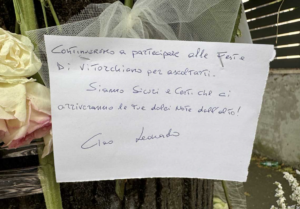 Continueremo a partecipare alle Feste
Di Vitorchiano per ascoltarti.
Siamo Sicuri e Certi che ci
arriveranno le tue dolci note dall'alto!
Ciao Leonardo